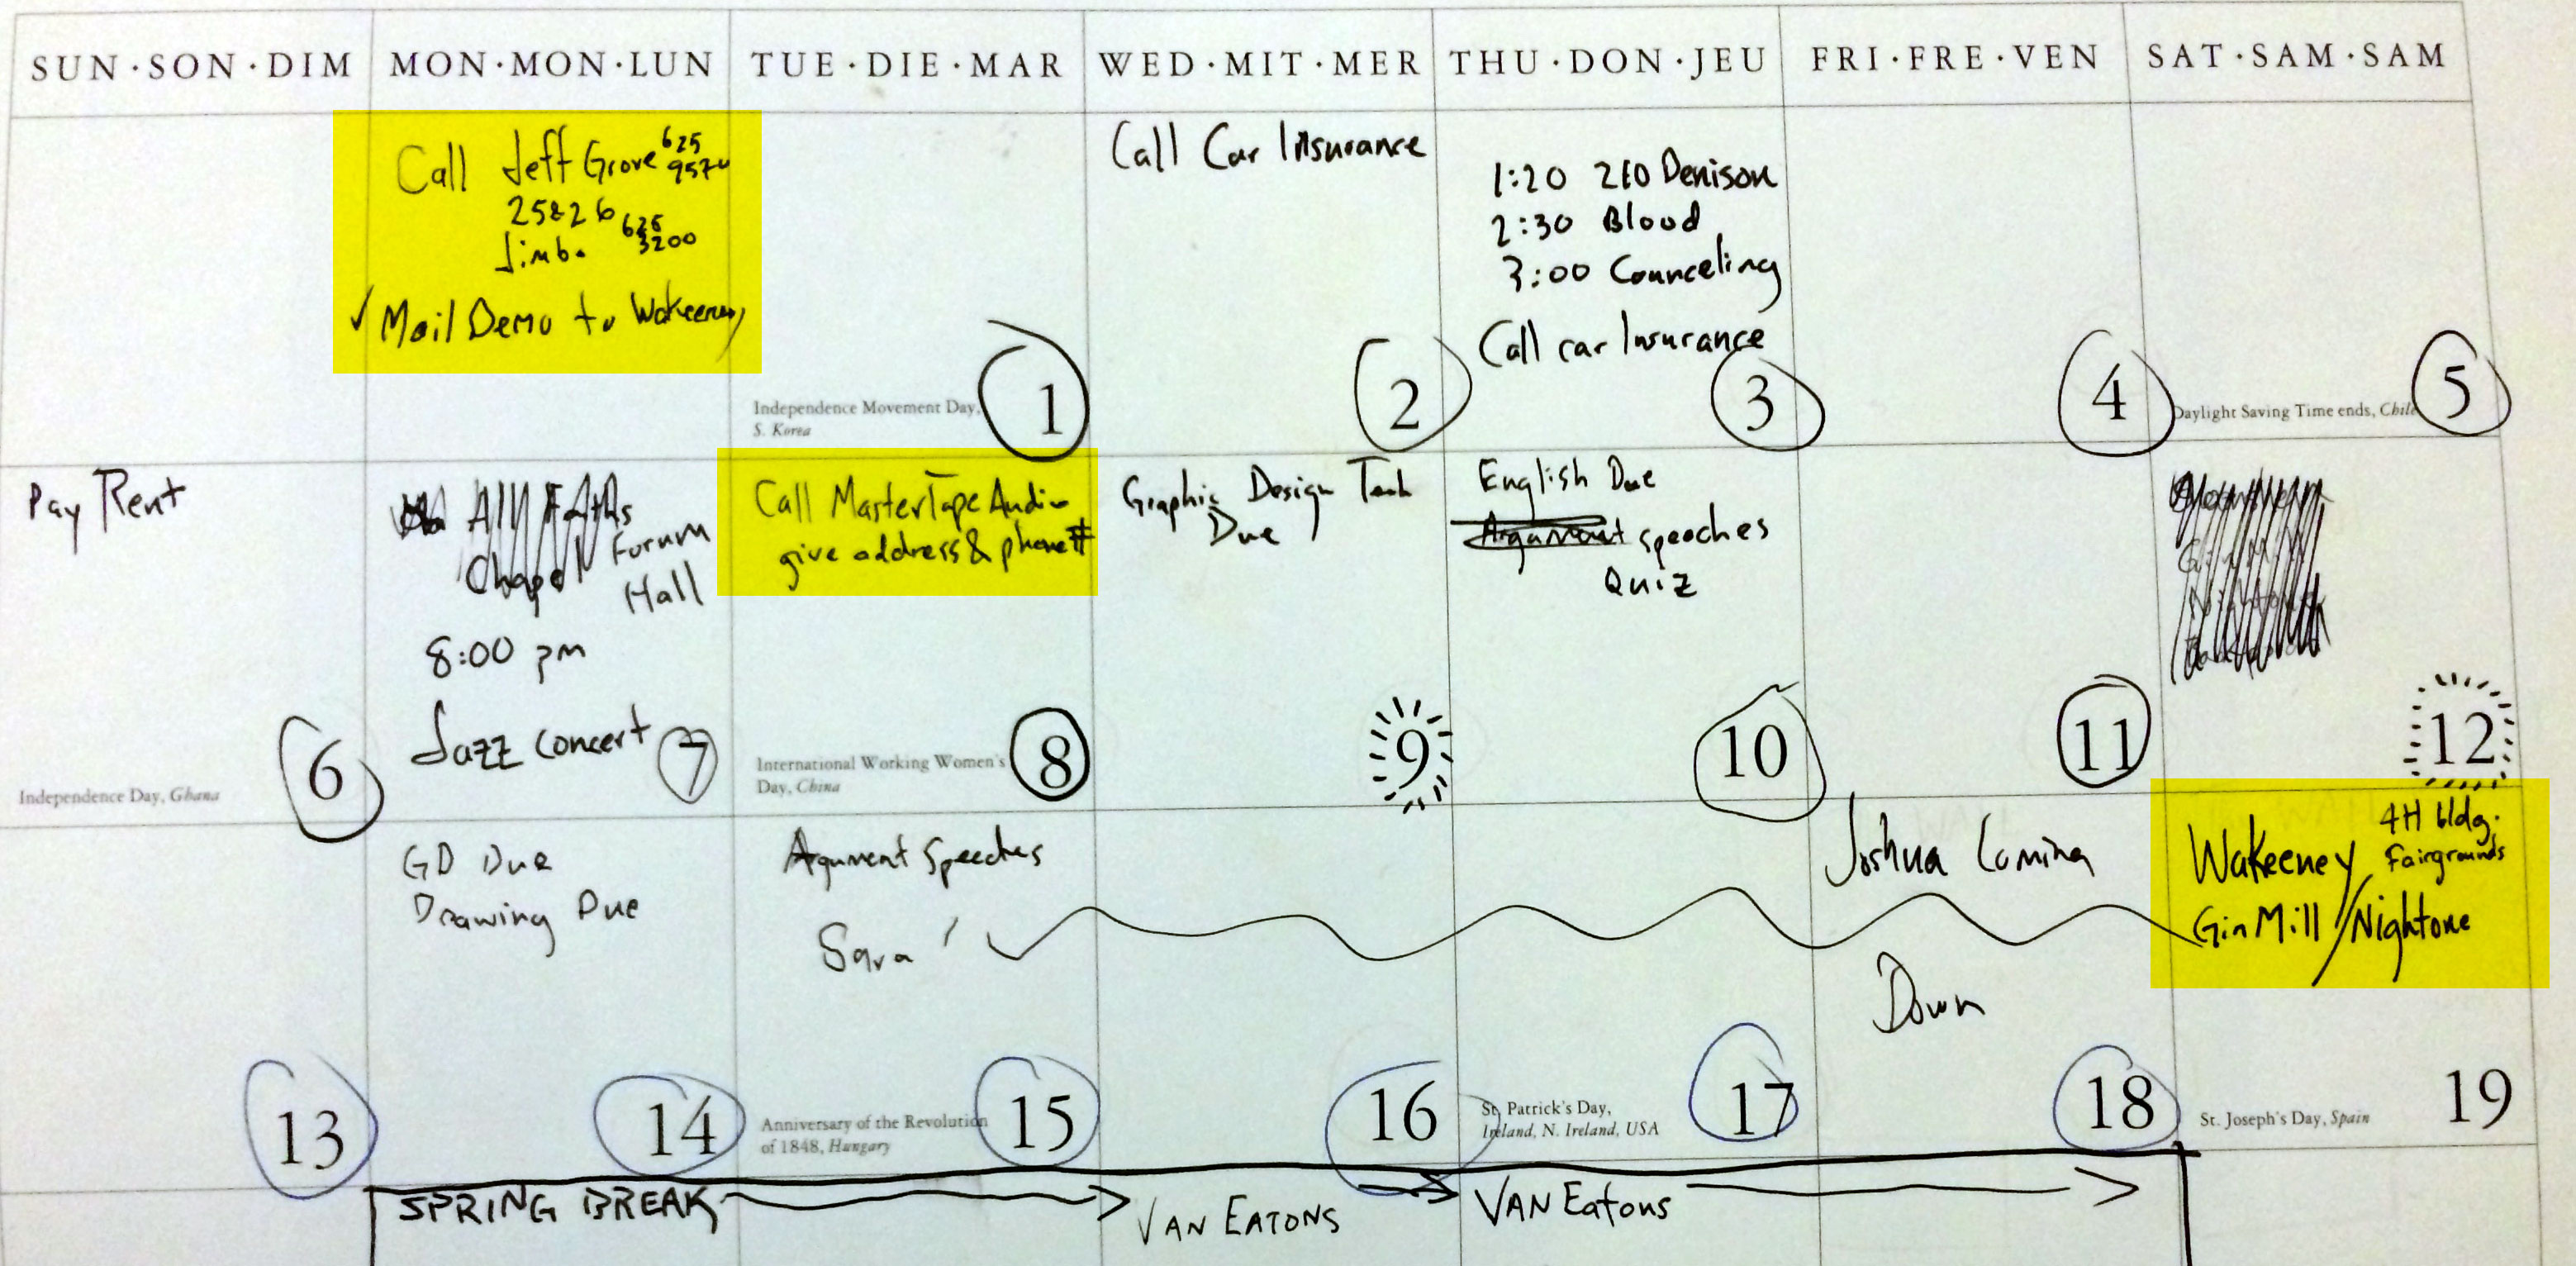 SUN·SON·DIM
MON·MON·LUN
TUE·DIE·MAR
WED·MIT·MER
THU·DON·JEU
FRI·FRE·VEN
SAT·SAM·SAM
Call Jeff Grove 625
957
25&26
Jimb. 625
3200
✓ Mail Demo to Wakeeney
Independence Movement Day,
S. Korea
1
Call Car Insurance
2
1:20 210 Denison
2:30 Blood
3:00 Counceling
Call car Insurance
3
4
Daylight Saving Time ends, Chile
5
Pay Rent
Independence Day, Ghana
6
All Faiths
Chapel Forum
Hall
8:00 pm
Jazz concert
7
Call MasterTape Audio
give address & phone #
International Working Women's
Day, China
8
Graphic Design Tech
Due
9
English Due
Argument speeches
Quiz
10
11
12
13
GD Due
Drawing Due
14
Argument Speeches
Sara
Anniversary of the Revolution
of 1848, Hungary
15
16
St. Patrick's Day,
Ireland, N. Ireland, USA
17
Joshua Coming
Down
18
4H bldg.
Wakeeney Fairgrounds
Gin Mill / Nightone
St. Joseph's Day, Spain
19
SPRING BREAK
VAN EATONS
VAN Eatons